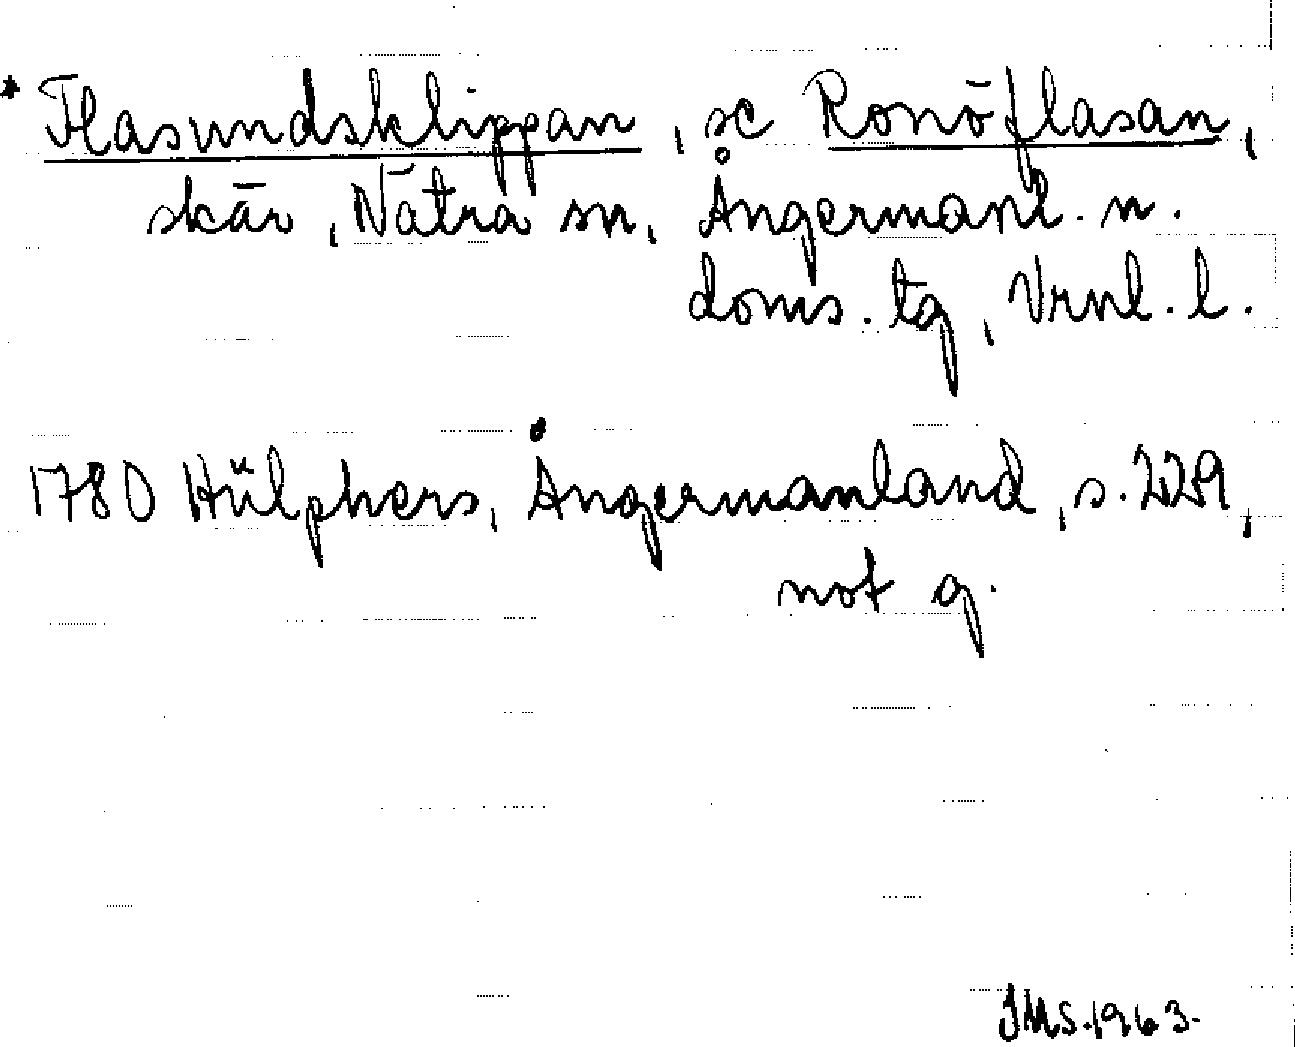 * Flasundsklippan, se Ronöflasan,
skär, Nätra sn, Ångermanl. n.
doms. tg, Vrnl. l.
1780 Hülphers, Ångermanland, s. 229,
not q.
JMS. 1963.